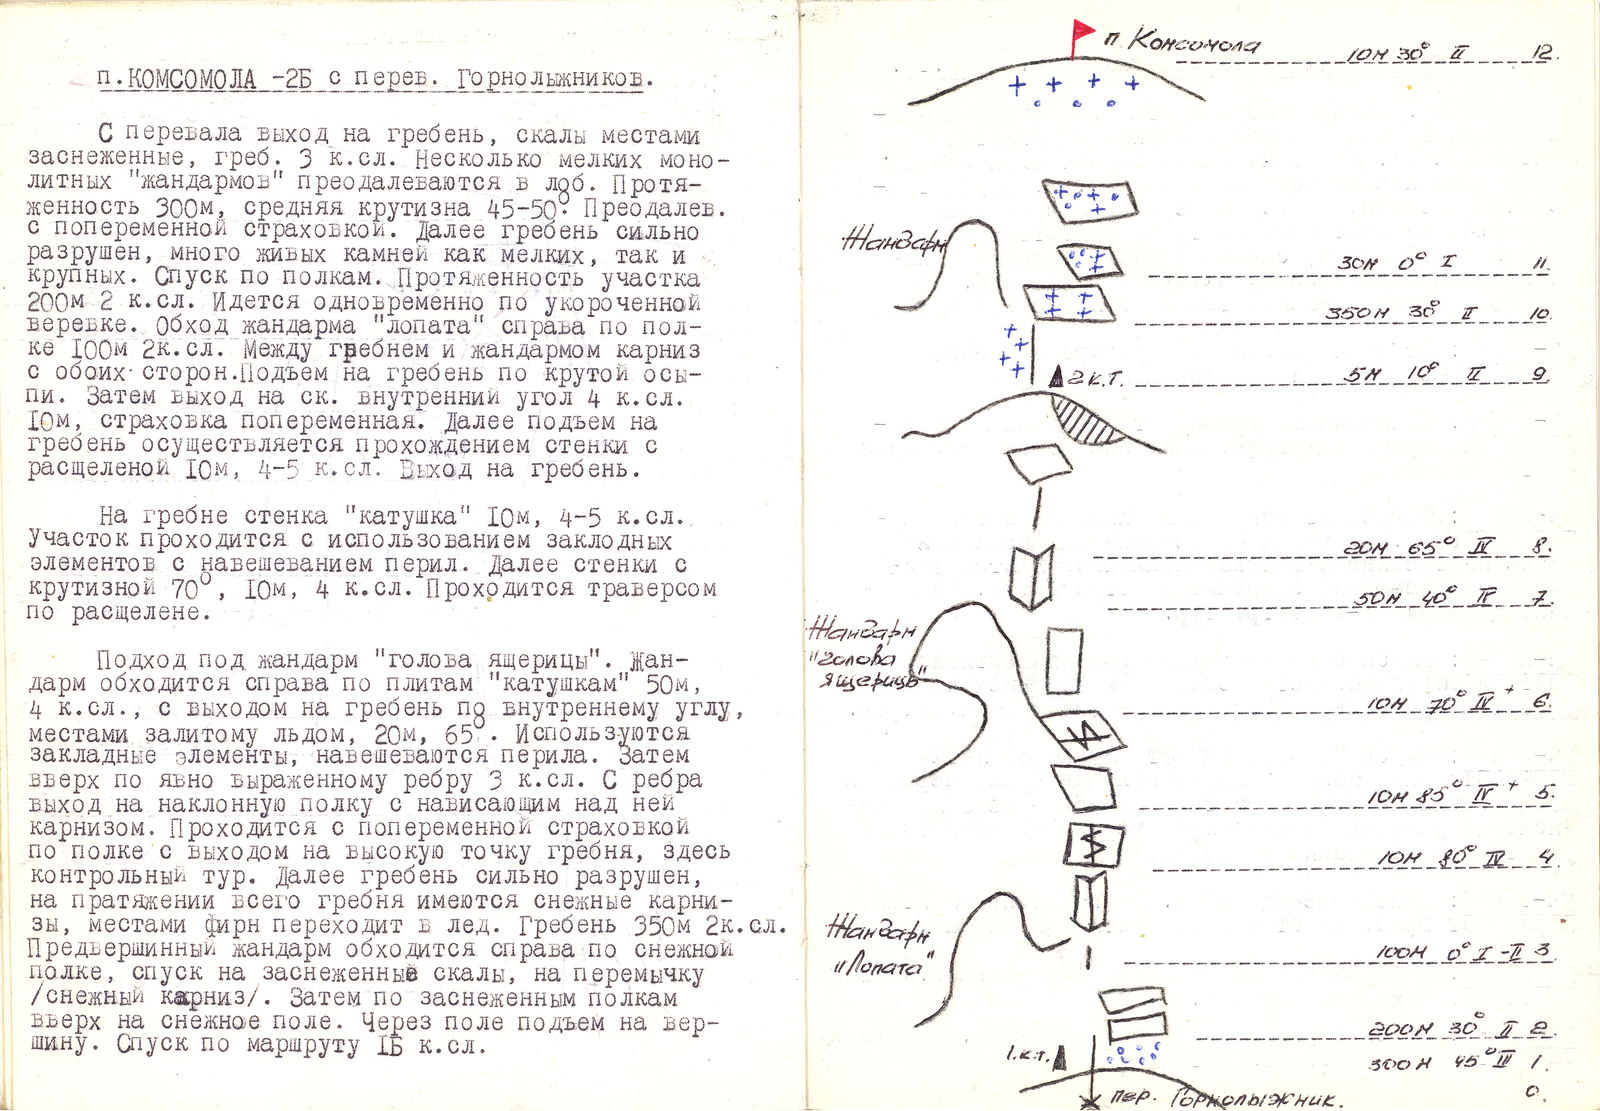 п.КОМСОМОЛА -2Б с перев. Горнолыжников.
С перевала выход на гребень, скалы местами
заснеженные, греб. 3 к.сл. Несколько мелких моно-
литных "жандармов" преодалеваются в лоб. Протя-
женность 300м, средняя крутизна 45-50°. Преодалев.
с попеременной страховкой. Далее гребень сильно
разрушен, много живых камней как мелких, так и
крупных. Спуск по полкам. Протяженность участка
200м 2 к.сл. Идется одновременно по укороченной
веревке. Обход жандарма "лопата" справа по пол-
ке 100м 2к.сл. Между гребнем и жандармом карниз
с обоих сторон.Подъем на гребень по крутой осы-
пи. Затем выход на ск. внутренний угол 4 к.сл.
10м, страховка попеременная. Далее подъем на
гребень осуществляется прохождением стенки с
расщеленой 10м, 4-5 к.сл. Выход на гребень.
На гребне стенка "катушка" 10м, 4-5 к.сл.
Участок проходится с использованием заклодных
элементов с навешеванием перил. Далее стенки с
крутизной 70°, 10м, 4 к.сл. Проходится траверсом
по расщелене.
Подход под жандарм "голова ящерицы". Жан-
дарм обходится справа по плитам "катушкам" 50м,
4 к.сл., с выходом на гребень по внутреннему углу,
местами залитому льдом, 20м, 65°. Используются
закладные элементы, навешеваются перила. Затем
вверх по явно выраженному ребру 3 к.сл. С ребра
выход на наклонную полку с нависающим над ней
карнизом. Проходится с попеременной страховкой
по полке с выходом на высокую точку гребня, здесь
контрольный тур. Далее гребень сильно разрушен,
на пратяжении всего гребня имеются снежные карни-
зы, местами фирн переходит в лед. Гребень 350м 2к.сл.
Предвершинный жандарм обходится справа по снежной
полке, спуск на заснеженные скалы, на перемычку
/снежный карниз/. Затем по заснеженным полкам
вверх на снежное поле. Через поле подъем на вер-
шину. Спуск по маршруту 1Б к.сл.
п. Комсомола 10м 30° II 12.
Жандарм
30м 0° I 11.
350м 30° II 10.
2 к.т. 5м 10° II 9.
20м 65° IV 8.
50м 40° IV 7.
Жандарм
"голова
ящерицы"
10м 70° IV+ 6.
10м 85° IV+ 5.
10м 80° IV 4.
Жандарм
"Лопата"
100м 0° I-II 3
200м 30° II 2.
1.к.т. 300м 45° III 1.
пер. Горнолыжник. 0.